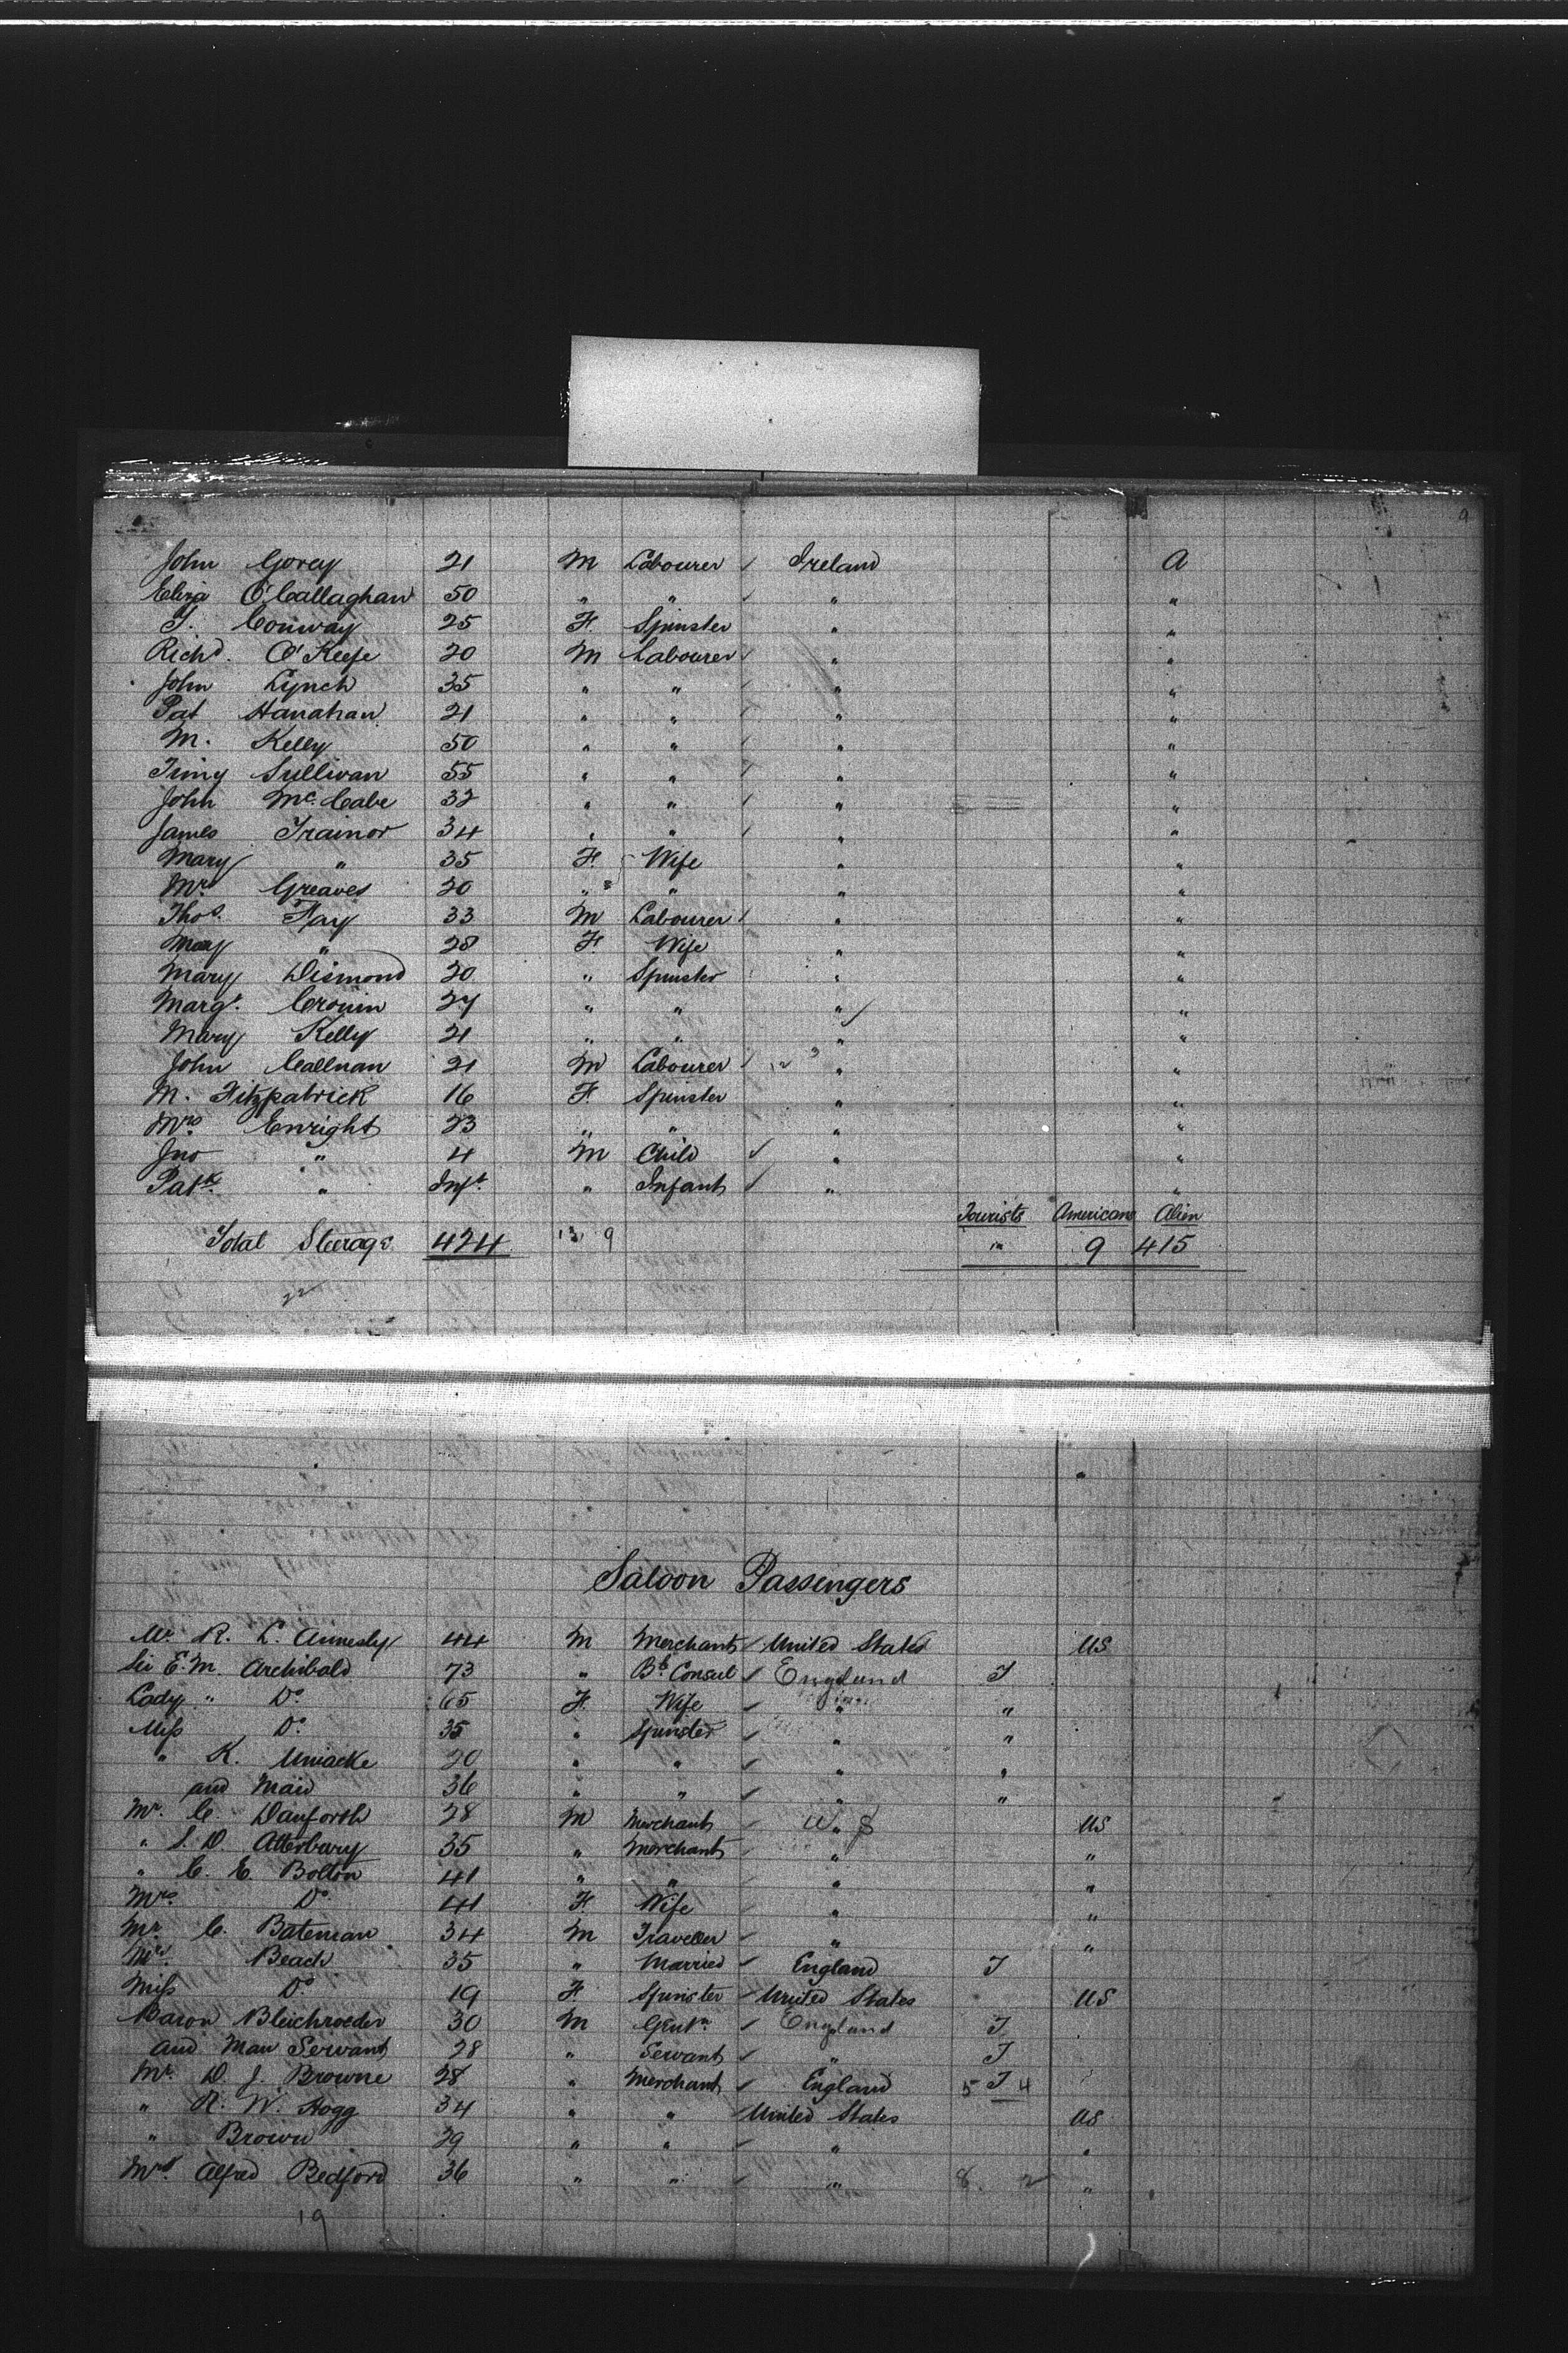 John Gorey 21 M Labourer ✓ Ireland A
Eliza O'Callaghan 50 " " ✓ " "
T. Conway 25 F. Spinster " "
Richd. O'Keefe 20 M Labourer ✓ " "
John Lynch 35 " " ✓ " "
Pat Hanahan 21 " " ✓ " "
M. Kelly 50 " " ✓ " "
Timy Sullivan 55 " " ✓ " "
John McCabe 32 " " ✓ " "
James Trainor 34 " " ✓ " "
Mary " 35 F. Wife " "
Mrs Greaves 20 " " " "
Thos. Fay 33 M Labourer ✓ " "
Mary " 28 F. Wife " "
Mary Dismond 20 " Spinster " "
Margt. Cronin 27 " " " "
Mary Kelly 21 " " " "
John Callnan 21 M Labourer ✓ " "
M. Fitzpatrick 16 F. Spinster " "
Mrs. Enright 23 " " " "
Jno " 4 M Child ✓ " "
Patk. " Inft. " Infant ✓ " "
Tourists Americans Alien
Total Steerage 424 13 9 " 9 415
22
Saloon Passengers
Mr. R. L. Annesly 44 M Merchant ✓ United States US
Sir E. M. Archibald 73 " Bt. Consul ✓ England T
Lady " Do. 65 F. Wife ✓ " "
Miss Do. 35 " Spinster ✓ " "
" K. Uniacke 20 " " ✓ " "
and Maid 36 " " ✓ " "
Mr. C. Danforth 28 M Merchant ✓ U. S US
" S. D. Atterbury 35 " Merchant ✓ " "
" C. E. Bolton 41 " " ✓ " "
Mrs. Do. 41 F. Wife ✓ " "
Mr. C. Bateman 34 M Traveller ✓ " "
Mrs. Beach 35 " Married ✓ England T
Miss Do. 19 F. Spinster ✓ United States US
Baron Bleichroeder 30 M Gentn. ✓ England T
and Man Servant 28 " Servant ✓ " T
Mr. D. J. Browne 28 " Merchant ✓ England 5 T 4
" R. W. Hogg 34 " " ✓ United States US
" Brown 29 " " ✓ " "
Mrs. Alfred Bedford 36 " " ✓ " 8. 2 "
19